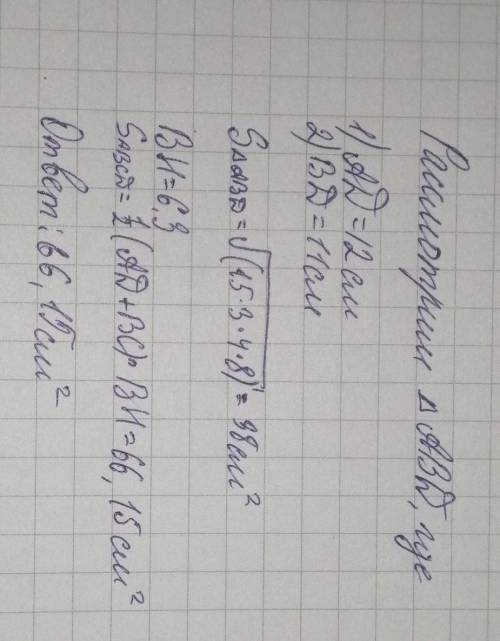 Рассмотрим △ ABD, где
1) AD = 12 см
2) BD = 11 см
S△ABD = √(15·3·4·8) = 38 см²
BH = 6,3
SABCD = 1/2 (AD + BC) · BH = 66,15 см²
Ответ: 66,15 см²